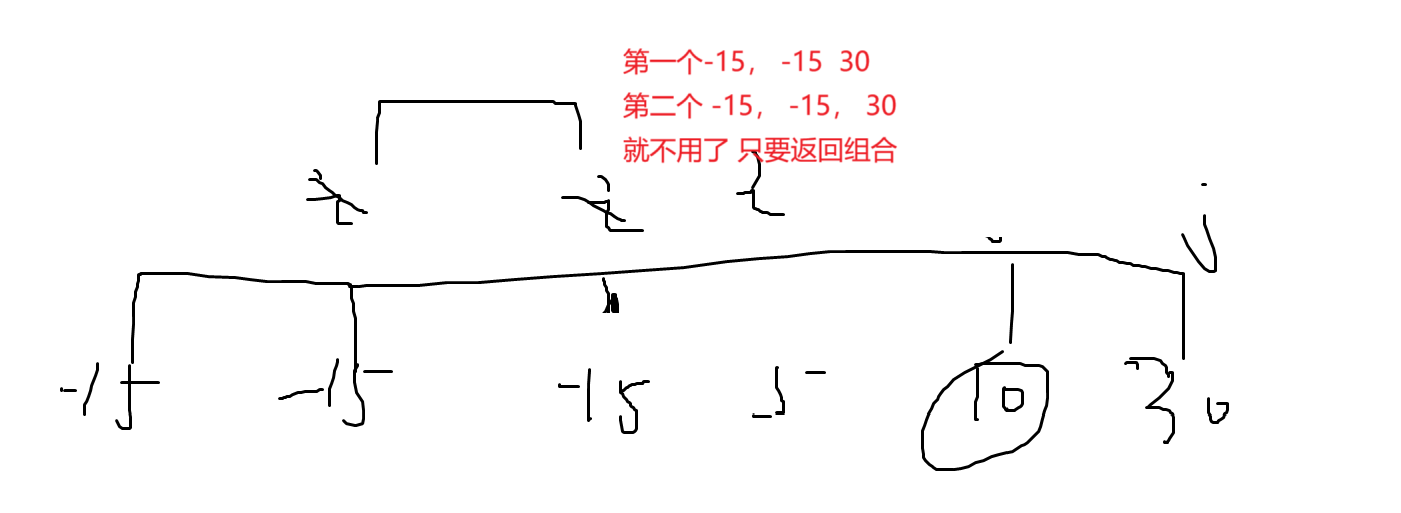 第一个-15， -15 30
第二个 -15， -15， 30
就不用了 只要返回组合
i i i j
-15 -15 -15 5 10 30